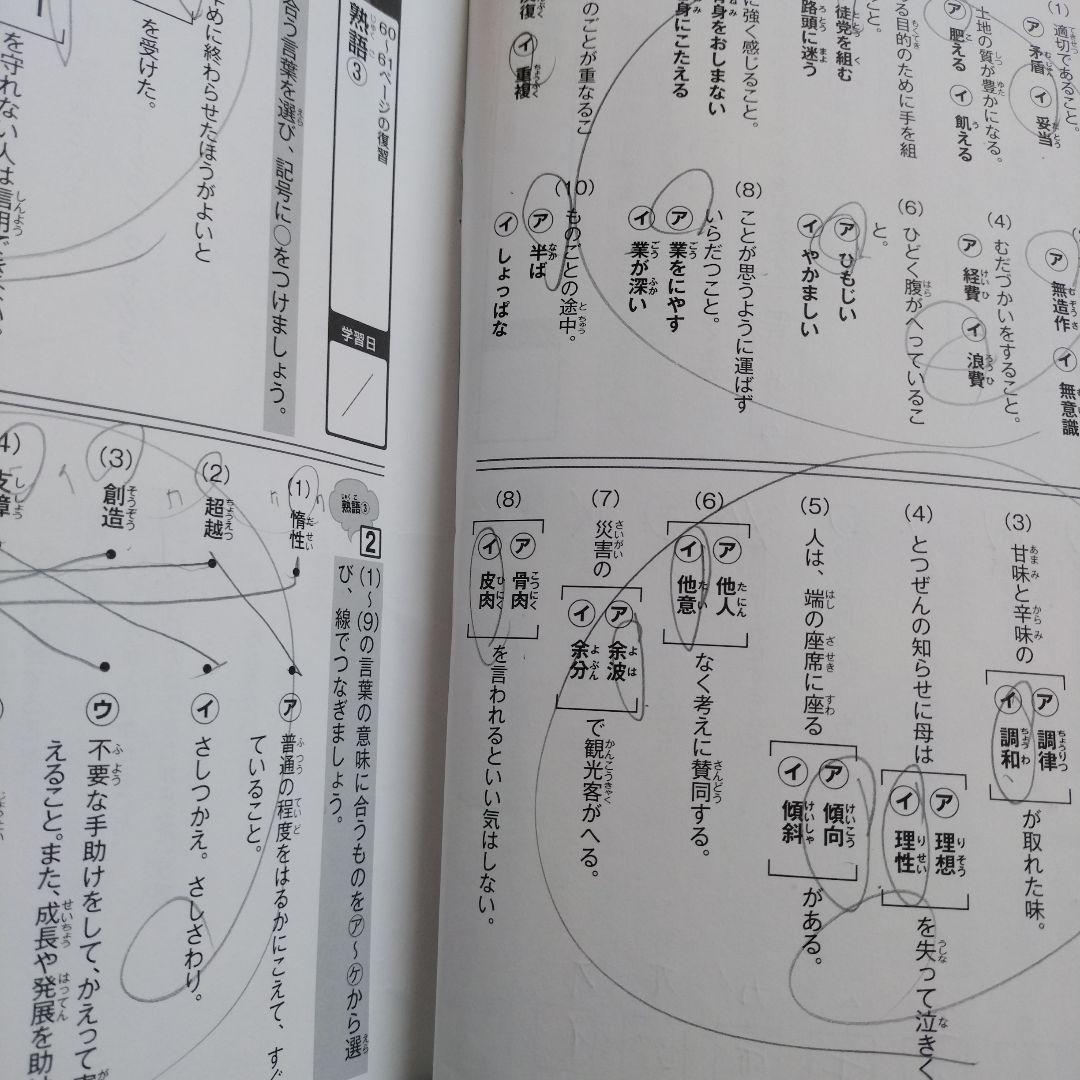 (1) 適切であること。
ア 矛盾 イ 妥当
土地の質が豊かになる。
ア 肥える イ 飢える
る目的のために手を組
こと。
徒党を組む
路頭に迷う
に強く感じること。
身をおしまない
身にこたえる
のことが重なるこ
イ 重複
ア 無造作 イ 無意識
(4) むだづかいをすること。
ア 経費 イ 浪費
(6) ひどく腹がへっているこ
と。
ア ひもじい
イ やかましい
(8) ことが思うように運ばず
いらだつこと。
ア 業をにやす
イ 業が深い
(10) ものごとの途中。
ア 半ば
イ しょっぱな
(3) 甘味と辛味の
ア 調律
イ 調和
が取れた味。
(4) とつぜんの知らせに母は
ア 理想
イ 理性
を失って泣きく
(5) 人は、端の座席に座る
ア 傾向
イ 傾斜
がある。
(6)
ア 他人
イ 他意
なく考えに賛同する。
(7) 災害の
ア 余波
イ 余分
で観光客がへる。
(8)
ア 骨肉
イ 皮肉
を言われるといい気はしない。
60〜61ページの復習
熟語③
学習日
合う言葉を選び、記号に○をつけましょう。
めに終わらせたほうがよいと
を受けた。
を守れない人は信用で
熟語③
2
(1)〜(9)の言葉の意味に合うものを㋐〜㋘から選
び、線でつなぎましょう。
(1) 惰性
(2) 超越
(3) 創造
ア 普通の程度をはるかにこえて、すぐ
ていること。
イ さしつかえ。さしさわり。
ウ 不要な手助けをして、かえって
えること。また、成長や発展を助